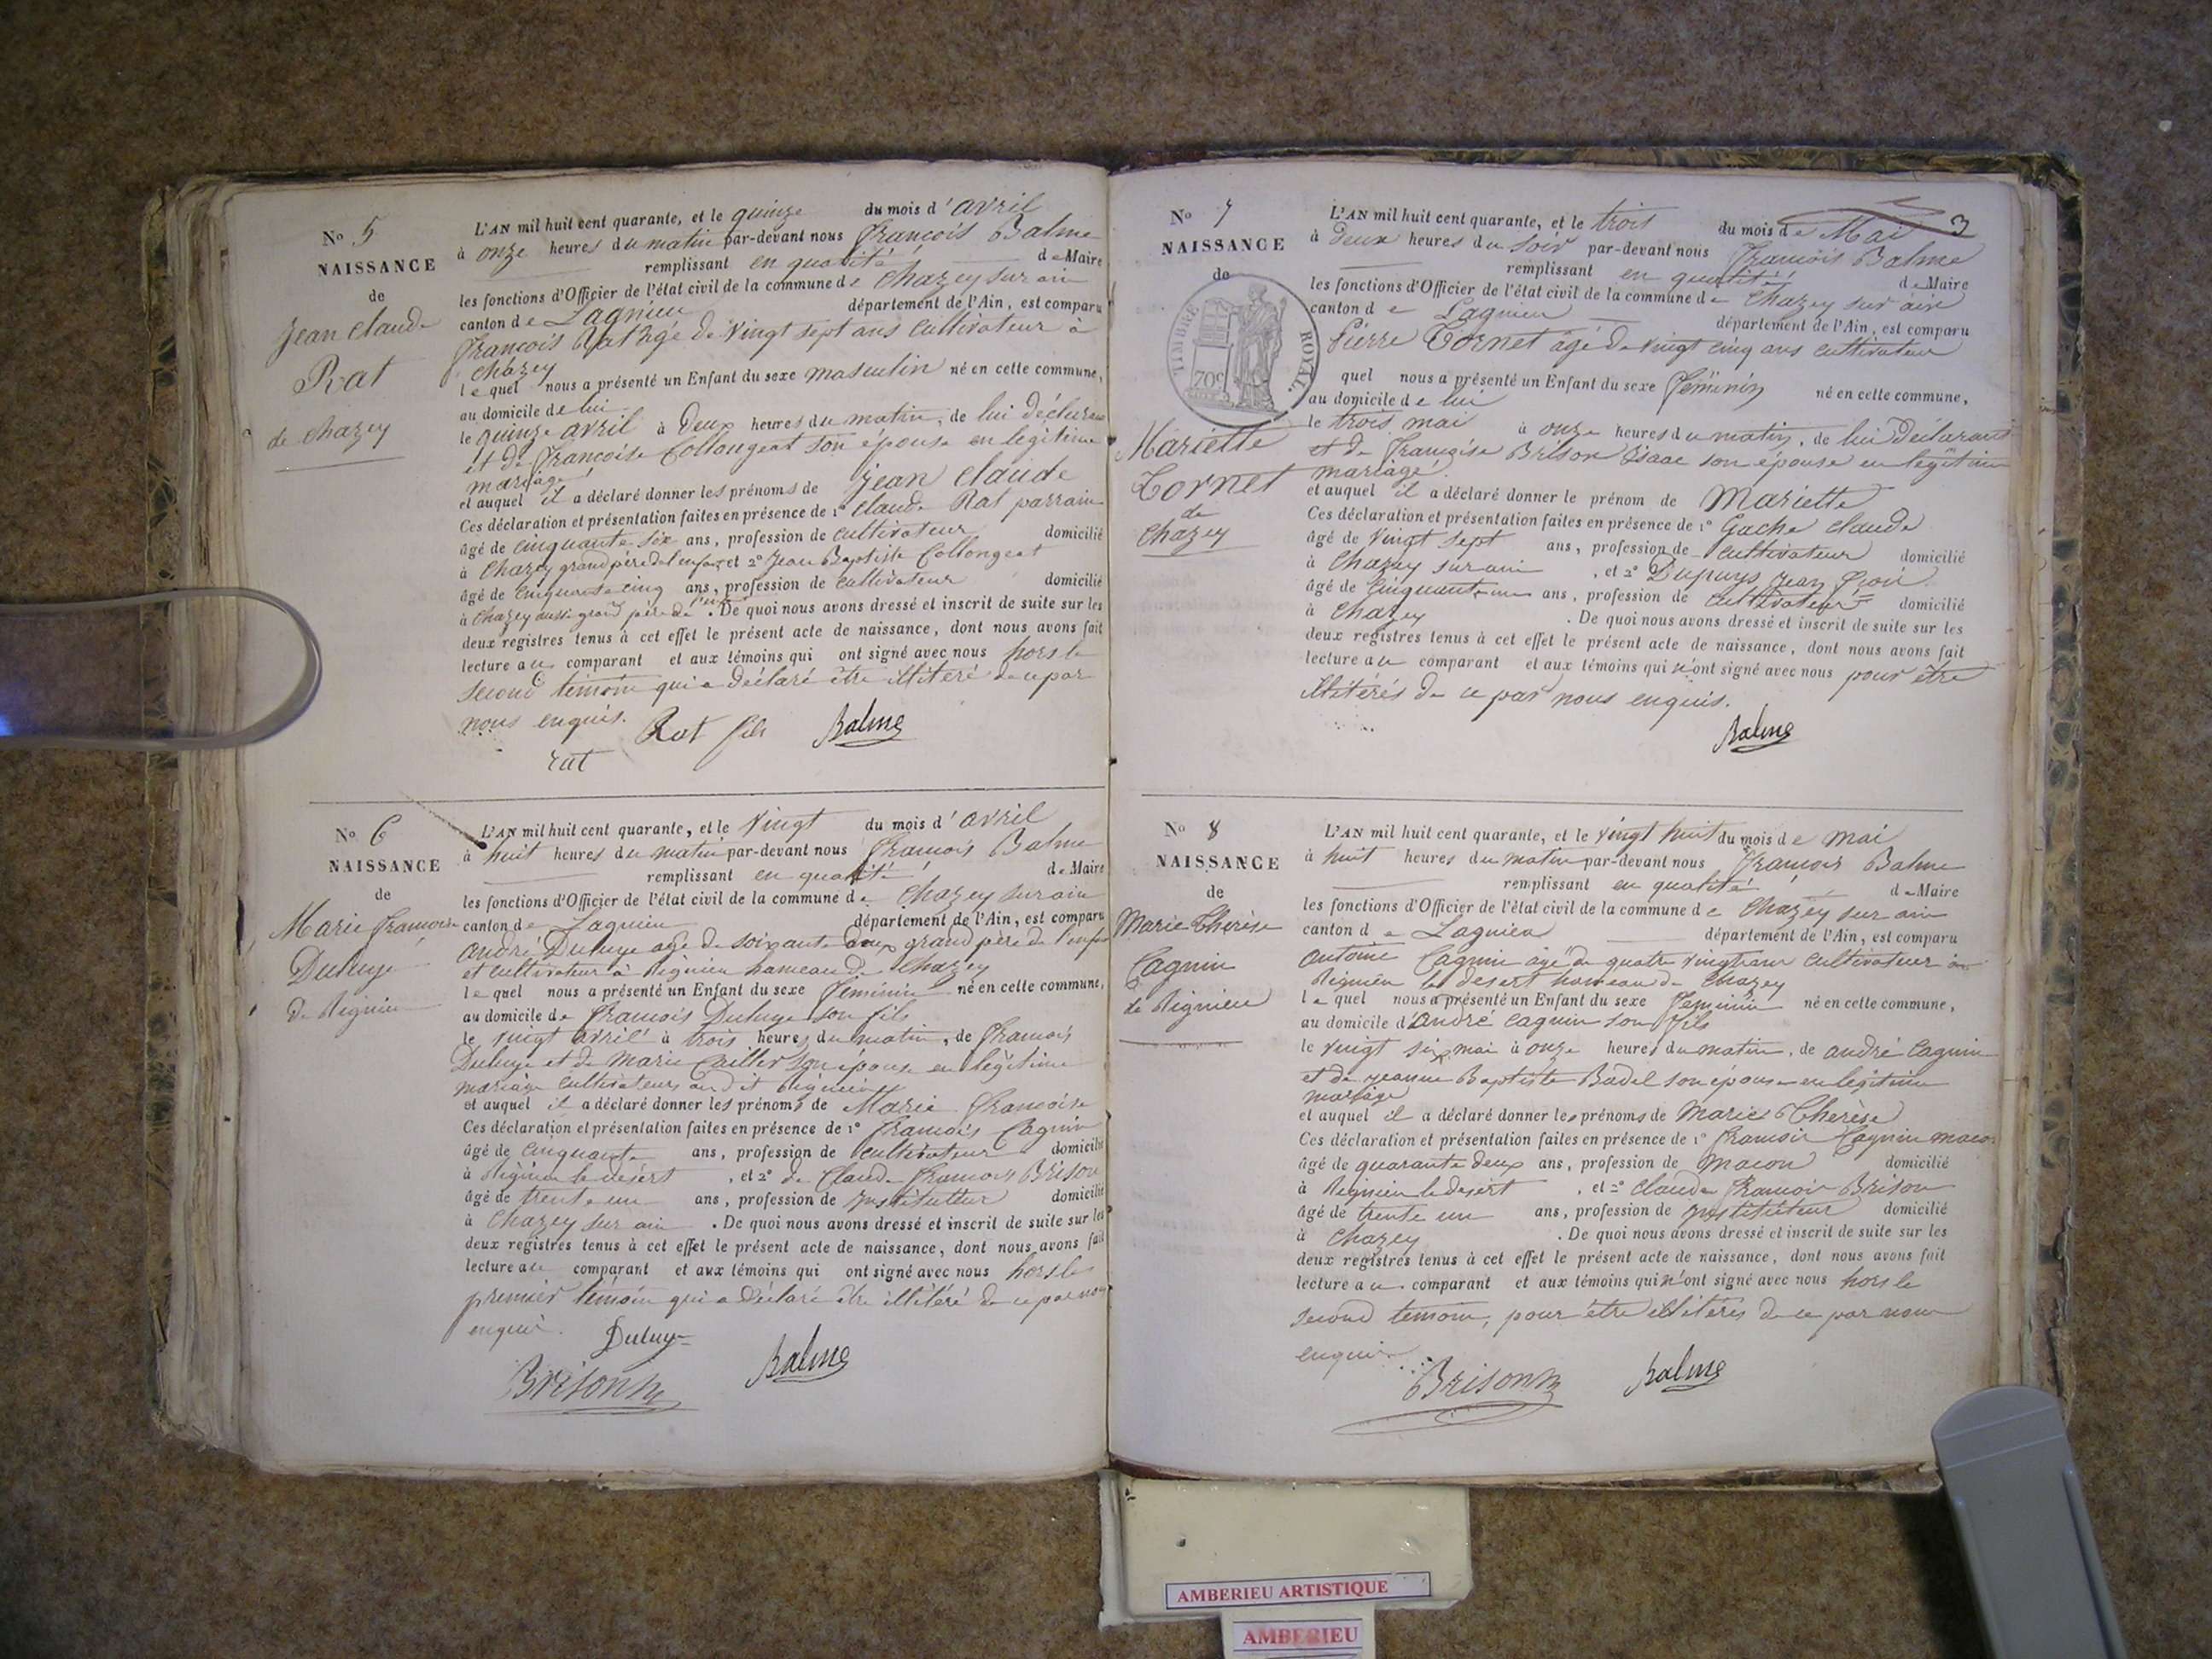 No 5
NAISSANCE
de
Jean Claude
Rat
de Chazey
L'AN mil huit cent quarante, et le quinze du mois d'avril
à onze heures du matin par-devant nous François Balme
remplissant en qualité de Maire
les fonctions d'Officier de l'état civil de la commune de Chazey sur ain
canton de Lagnieu département de l'Ain, est comparu
François Rat âgé de vingt sept ans cultivateur à
Chazey
lequel nous a présenté un Enfant du sexe masculin né en cette commune,
au domicile de lui
le quinze avril à Deux heures du matin, de lui déclarant
et de Françoise Collongeat son épouse en légitime
mariage
et auquel il a déclaré donner les prénoms de Jean Claude
Ces déclaration et présentation faites en présence de 1º Claude Rat parrain
âgé de cinquante six ans, profession de cultivateur domicilié
à Chazey grand père de l'enfant et 2º Jean Baptiste Collongeat
âgé de cinquante cinq ans, profession de cultivateur domicilié
à Chazey aussi grand père de l'enfant. De quoi nous avons dressé et inscrit de suite sur les
deux registres tenus à cet effet le présent acte de naissance, dont nous avons fait
lecture au comparant et aux témoins qui ont signé avec nous hors le
second témoin qui a déclaré être illitéré de ce par
nous enquis.
Rat fils Balme
rat
No 6
NAISSANCE
de
Marie Françoise
Duluye
de Rignieu
L'AN mil huit cent quarante, et le vingt du mois d'avril
à huit heures du matin par-devant nous François Balme
remplissant en qualité de Maire
les fonctions d'Officier de l'état civil de la commune de Chazey sur ain
canton de Lagnieu département de l'Ain, est comparu
André Duluye agé de soixante deux grand père de l'enfant
et cultivateur à Rignieu hameau de Chazey
lequel nous a présenté un Enfant du sexe féminin né en cette commune,
au domicile de François Duluye son fils
le vingt avril à trois heures du matin, de François
Duluye et de Marie Cailler son épouse en légitime
mariage cultivateurs au dit Rignieu
et auquel il a déclaré donner les prénoms de Marie Françoise
Ces déclaration et présentation faites en présence de 1º François Cagnin
âgé de cinquante ans, profession de cultivateur domicilié
à Rignieu le désert, et 2º de Claude François Brison
âgé de trente un ans, profession de instituteur domicilié
à Chazey sur ain. De quoi nous avons dressé et inscrit de suite sur les
deux registres tenus à cet effet le présent acte de naissance, dont nous avons fait
lecture au comparant et aux témoins qui ont signé avec nous hors le
premier témoin qui a déclaré être illitéré de ce par nous
enquis.
Duluye
Brison Balme
3
No 7
NAISSANCE
de
TIMBRE ROYAL.
70c
Mariette
Tornet
de
Chazey
L'AN mil huit cent quarante, et le trois du mois de Mai
à Deux heures du soir par-devant nous François Balme
remplissant en qualité de Maire
les fonctions d'Officier de l'état civil de la commune de Chazey sur ain
canton de Lagnieu département de l'Ain, est comparu
Pierre Tornet âgé de vingt cinq ans cultivateur
quel nous a présenté un Enfant du sexe féminin né en cette commune,
au domicile de lui
le trois mai à onze heures du matin, de lui Déclarant
et de Françoise Brison Isaac son épouse en légitime
mariage
et auquel il a déclaré donner le prénom de Mariette
Ces déclaration et présentation faites en présence de 1º Gache Claude
âgé de vingt sept ans, profession de cultivateur domicilié
à Chazey sur ain, et 2º Dupuys Jean
âgé de cinquante ans, profession de cultivateur domicilié
à Chazey. De quoi nous avons dressé et inscrit de suite sur les
deux registres tenus à cet effet le présent acte de naissance, dont nous avons fait
lecture au comparant et aux témoins qui n'ont signé avec nous pour être
illitérés de ce par nous enquis.
Balme
No 8
NAISSANCE
de
Marie Therèse
Cagnin
de Rignieu
L'AN mil huit cent quarante, et le vingt huit du mois de mai
à huit heures du matin par-devant nous François Balme
remplissant en qualité de Maire
les fonctions d'Officier de l'état civil de la commune de Chazey sur ain
canton de Lagnieu département de l'Ain, est comparu
Antoine Cagnin âgé de quatre vingt ans cultivateur à
Rignieu le desert hameau de Chazey
lequel nous a présenté un Enfant du sexe féminin né en cette commune,
au domicile d'André Cagnin son fils
le vingt six mai à onze heures du matin, de andré Cagnin
et de jeanne Baptiste Badel son épouse en légitime
mariage
et auquel il a déclaré donner les prénoms de Marie Therèse
Ces déclaration et présentation faites en présence de 1º François Cagnin macon
âgé de quarante deux ans, profession de macon domicilié
à Rignieu le desert, et 2º Claude François Brison
âgé de trente un ans, profession de instituteur domicilié
à Chazey. De quoi nous avons dressé et inscrit de suite sur les
deux registres tenus à cet effet le présent acte de naissance, dont nous avons fait
lecture au comparant et aux témoins qui n'ont signé avec nous hors le
second temoin, pour être illitérés de ce par nous
enquis.
Brison Balme
AMBERIEU ARTISTIQUE
AMBERIEU